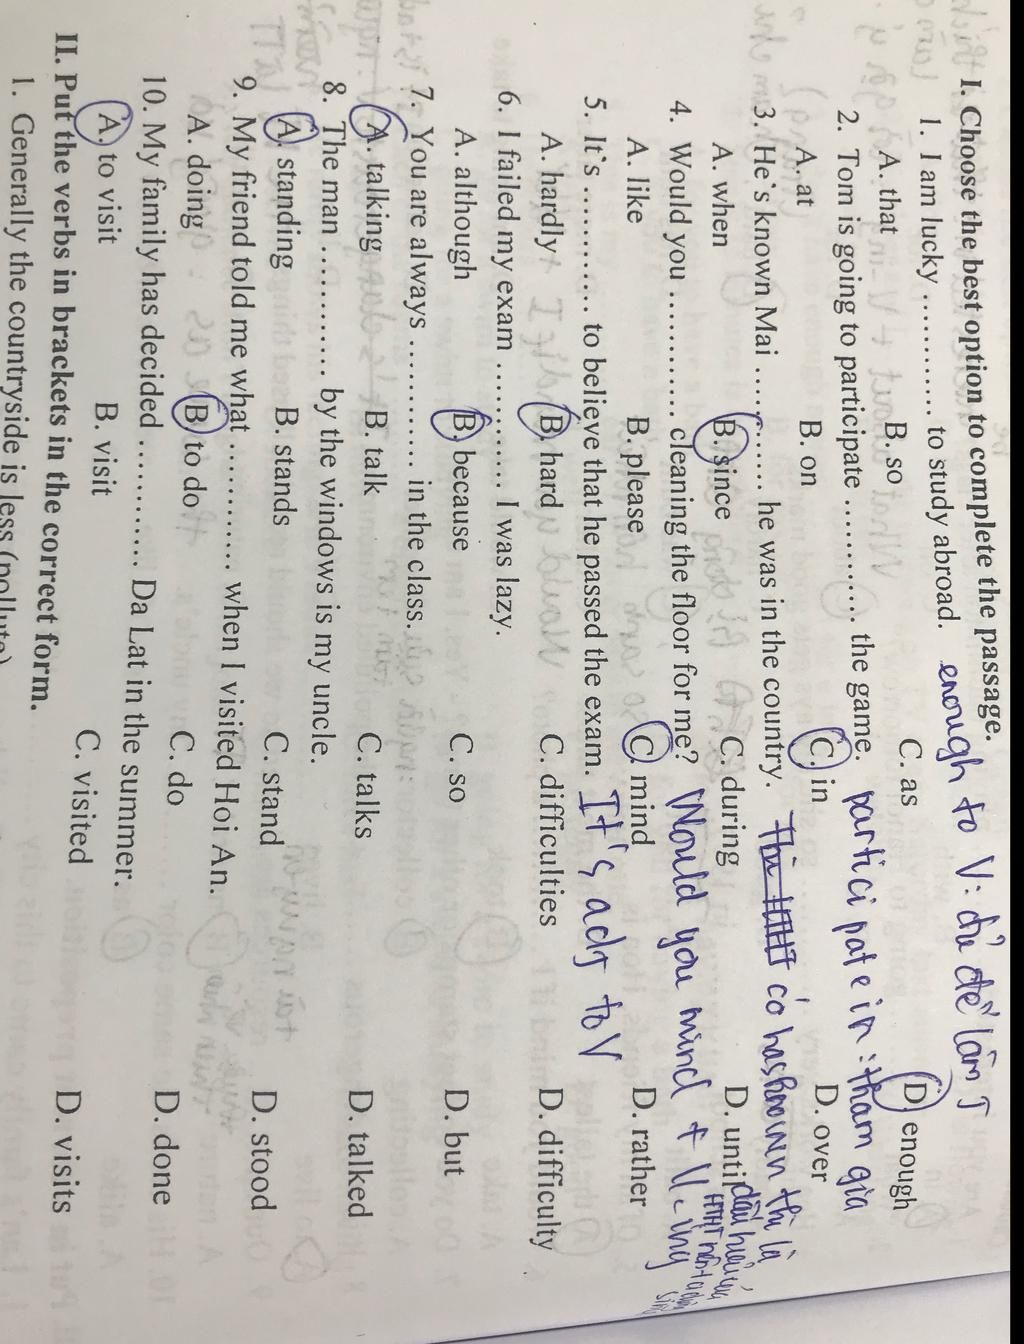 I. Choose the best option to complete the passage.
1. I am lucky ............ to study abroad. enough to V: đủ để làm
A. that B. so C. as D. enough
2. Tom is going to participate ............ the game. participate in: tham gia
A. at B. on C. in D. over
3. He`s known Mai ............ he was in the country. có has known thì là
A. when B. since C. during D. until dấu hiệu
4. Would you ............ cleaning the floor for me? Would you mind + V-ing
A. like B. please C. mind D. rather
5. It`s ............ to believe that he passed the exam. It's adj to V
A. hardly B. hard C. difficulties D. difficulty
6. I failed my exam ............ I was lazy.
A. although B. because C. so D. but
7. You are always ............ in the class.
A. talking B. talk C. talks D. talked
8. The man ............ by the windows is my uncle.
A. standing B. stands C. stand D. stood
9. My friend told me what ............ when I visited Hoi An.
A. doing B. to do C. do D. done
10. My family has decided ............ Da Lat in the summer.
A. to visit B. visit C. visited D. visits
II. Put the verbs in brackets in the correct form.
1. Generally the countryside is less (pollute)